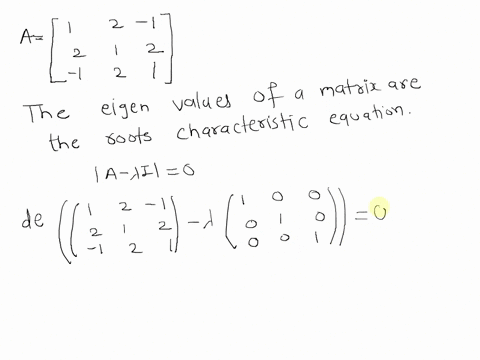 A= [ 1 2 -1
2 1 2
-1 2 1 ]
The eigen values of a matrix are
the roots characteristic equation.
|A-λI|=0
de (( 1 2 -1
2 1 2
-1 2 1 ) - λ ( 1 0 0
0 1 0
0 0 1 )) = 0